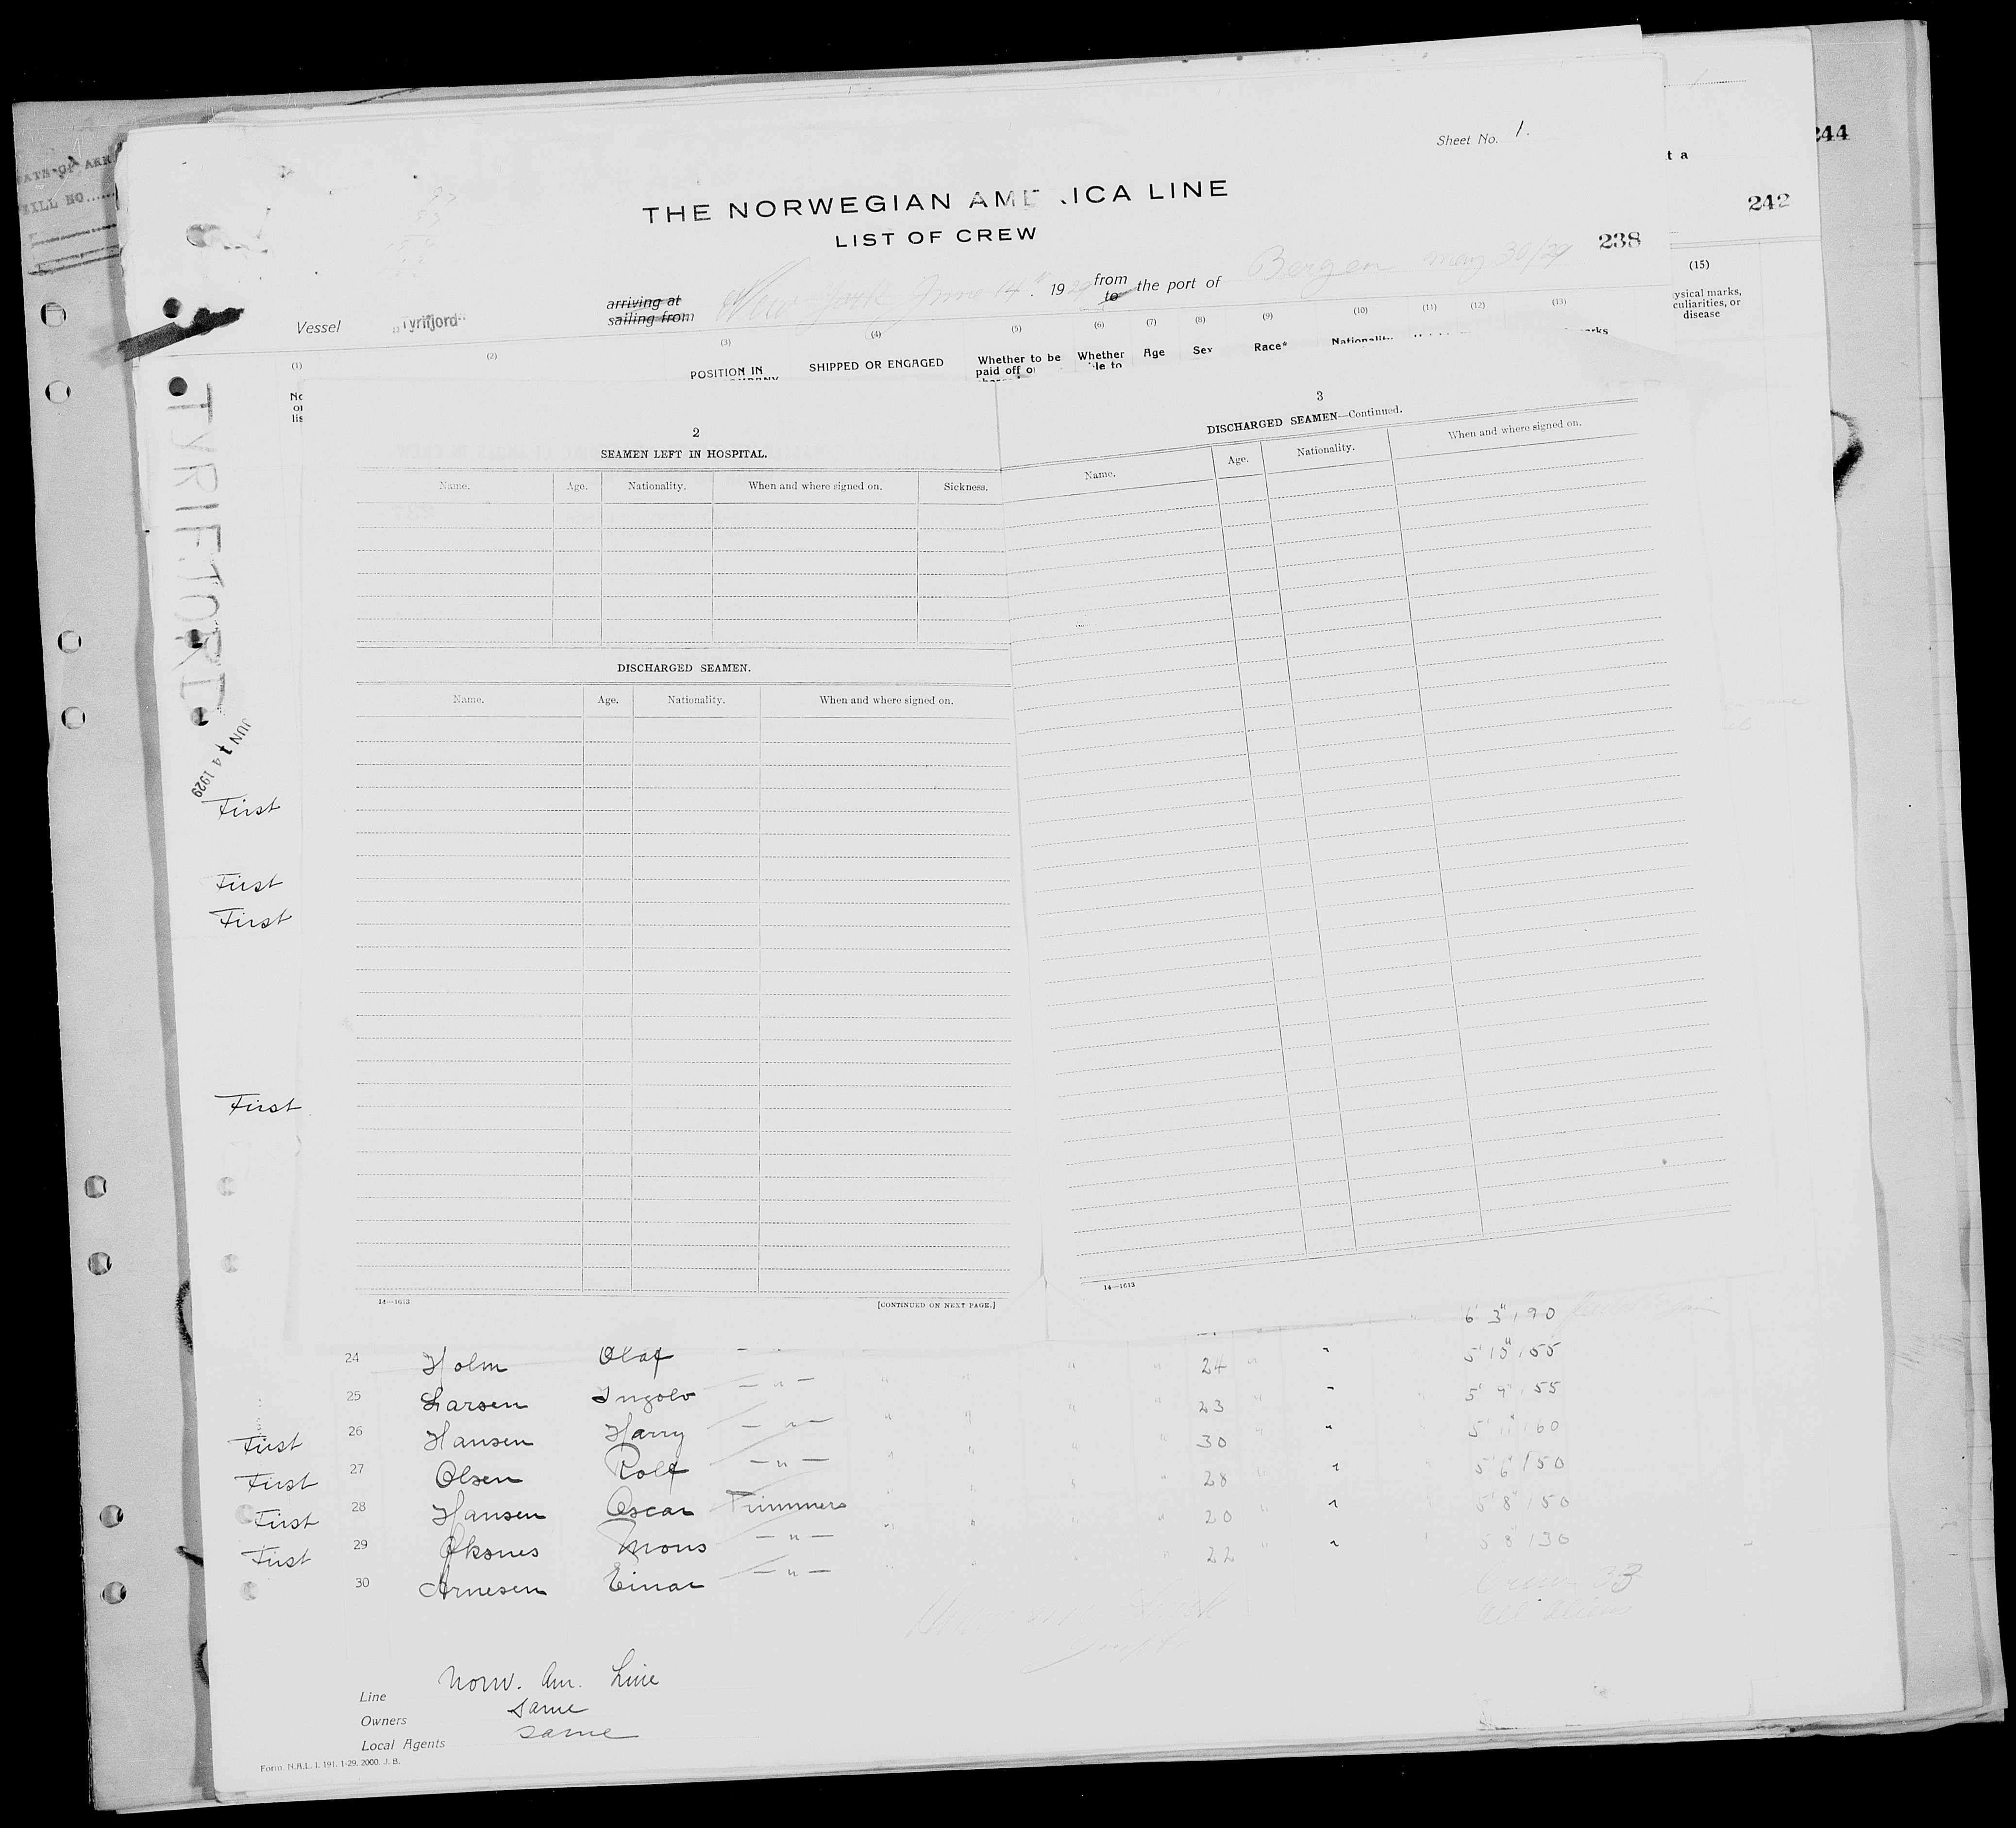 DATE OF ARR
244
Sheet No. 1.
t a
242
THE NORWEGIAN AME ICA LINE
LIST OF CREW
238
Vessel "Tyrifjord" arriving at sailing from New York June 14th 1929 from to the port of Bergen May 30/29
(1) (2) (3) (4) (5) (6) (7) (8) (9) (10) (11) (12) (13) (15)
POSITION IN
SHIPPED OR ENGAGED
Whether to be paid off or
Whether
Age
Sex
Race*
Nationality
ysical marks,
culiarities, or
disease
TYRIFJORD
JUN 14 1929
2
SEAMEN LEFT IN HOSPITAL.
Name. Age. Nationality. When and where signed on. Sickness.
DISCHARGED SEAMEN.
Name. Age. Nationality. When and where signed on.
14—1613 [CONTINUED ON NEXT PAGE.]
3
DISCHARGED SEAMEN—Continued.
Name. Age. Nationality. When and where signed on.
14—1613
First
First
First
First
6' 3" 190
24 Holm Olaf — " — 24 5' 10" 155
25 Larsen Ingolv — " — 23 5' 9" 155
First 26 Hansen Harry — " — 30 5' 11" 160
First 27 Olsen Rolf — " — 28 5' 6" 150
First 28 Hansen Oscar Trimmers 20 5' 8" 150
First 29 Øksnes Mons — " — 22 5' 8" 130
30 Arnesen Einar — " —
Crew 33
All Aliens
Line Norw. Am. Line
Owners same
Local Agents same
Form. N.A.L. I. 191. 1-29. 2000. J. B.